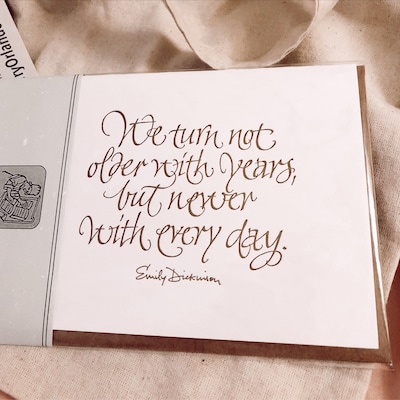 We turn not
older with years,
but newer
with every day.
Emily Dickinson